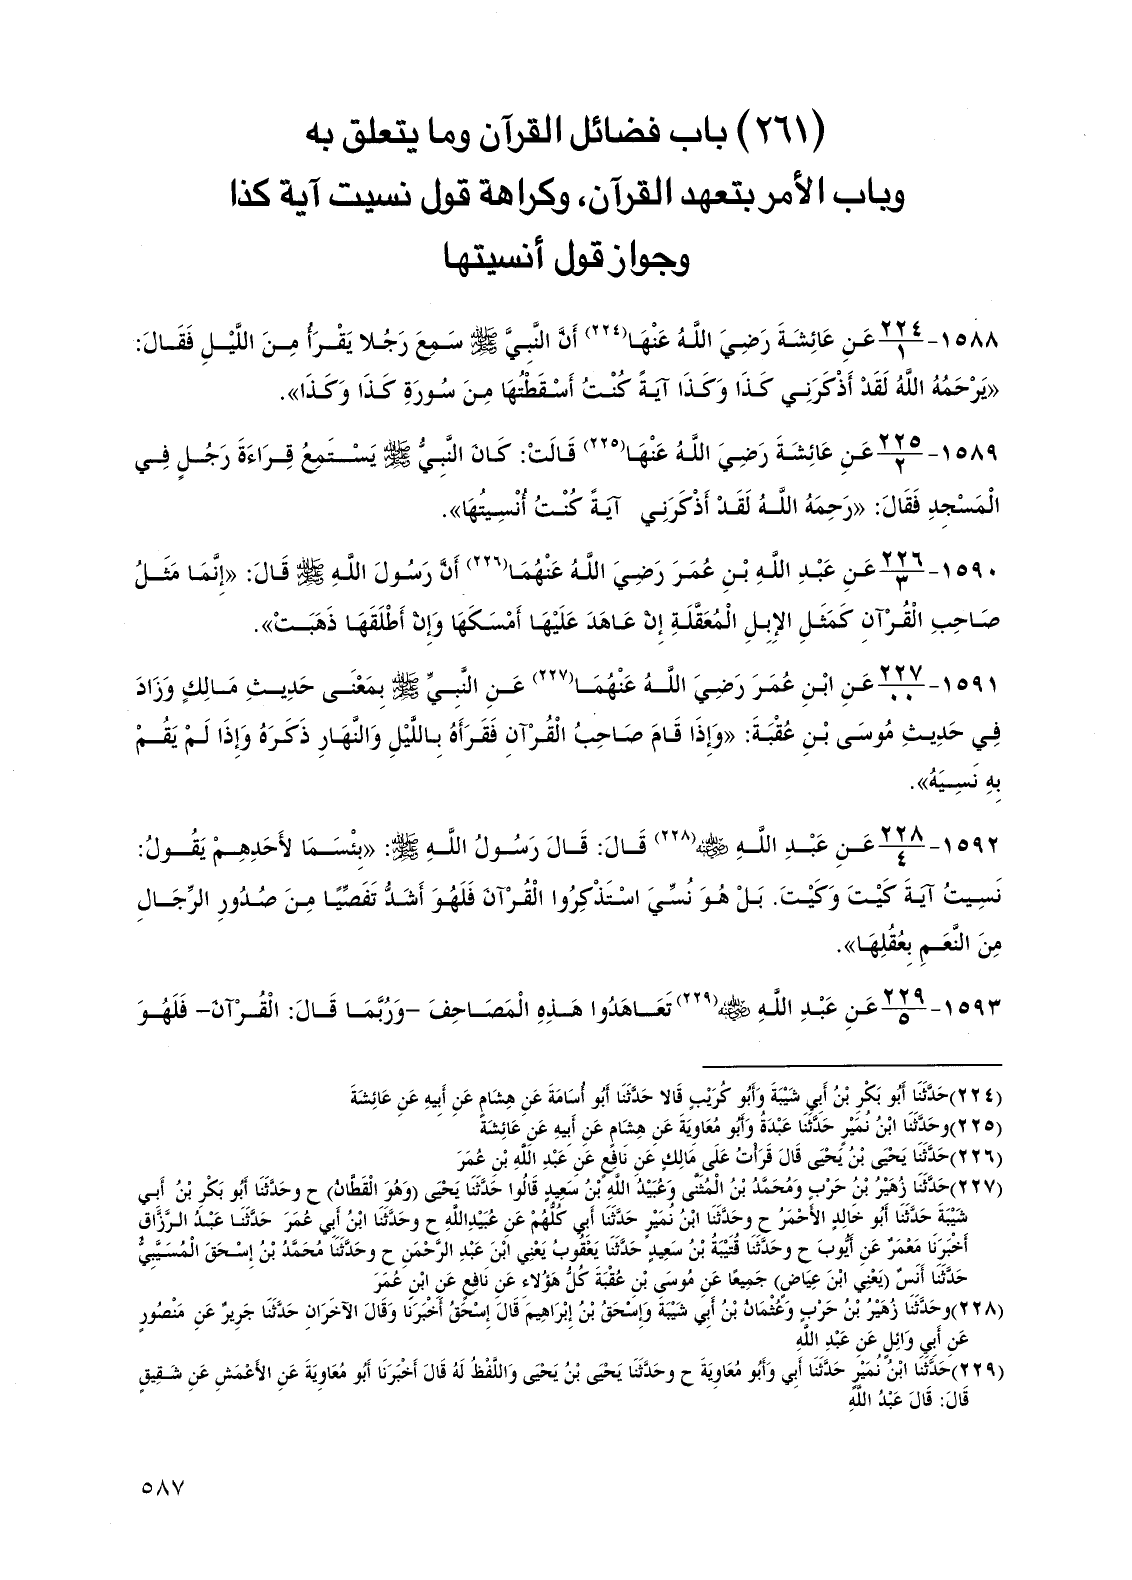 (٢٦١) باب فضائل القرآن وما يتعلق به
وباب الأمر بتعهد القرآن، وكراهة قول نسيت آية كذا
وجواز قول أنسيتها
١٥٨٨- ٢٢٤/١ عَنِ عَائِشَةَ رَضِيَ اللَّهُ عَنْهَا(٢٢٤) أَنَّ النَّبِيَّ ﷺ سَمِعَ رَجُلا يَقْرَأُ مِنَ اللَّيْلِ فَقَالَ:
«يَرْحَمُهُ اللَّهُ لَقَدْ أَذْكَرَنِي كَذَا وَكَذَا آيَةً كُنْتُ أَسْقَطْتُهَا مِنَ سُورَةِ كَذَا وَكَذَا».
١٥٨٩- ٢٢٥/٢ عَنِ عَائِشَةَ رَضِيَ اللَّهُ عَنْهَا(٢٢٥) قَالَتْ: كَانَ النَّبِيُّ ﷺ يَسْتَمِعُ قِرَاءَةَ رَجُلٍ فِي
الْمَسْجِدِ فَقَالَ: «رَحِمَهُ اللَّهُ لَقَدْ أَذْكَرَنِي آيَةً كُنْتُ أُنْسِيتُهَا».
١٥٩٠- ٢٢٦/٣ عَنِ عَبْدِ اللَّهِ بْنِ عُمَرَ رَضِيَ اللَّهُ عَنْهُمَا(٢٢٦) أَنَّ رَسُولَ اللَّهِ ﷺ قَالَ: «إِنَّمَا مَثَلُ
صَاحِبِ الْقُرْآنِ كَمَثَلِ الإِبِلِ الْمُعَقَّلَةِ إِنْ عَاهَدَ عَلَيْهَا أَمْسَكَهَا وَإِنْ أَطْلَقَهَا ذَهَبَتْ».
١٥٩١- ٢٢٧/٠٠ عَنِ ابْنِ عُمَرَ رَضِيَ اللَّهُ عَنْهُمَا(٢٢٧) عَنِ النَّبِيِّ ﷺ بِمَعْنَى حَدِيثِ مَالِكٍ وَزَادَ
فِي حَدِيثِ مُوسَى بْنِ عُقْبَةَ: «وَإِذَا قَامَ صَاحِبُ الْقُرْآنِ فَقَرَأَهُ بِاللَّيْلِ وَالنَّهَارِ ذَكَرَهُ وَإِذَا لَمْ يَقُمْ
بِهِ نَسِيَهُ».
١٥٩٢- ٢٢٨/٤ عَنِ عَبْدِ اللَّهِ ﷺ(٢٢٨) قَالَ: قَالَ رَسُولُ اللَّهِ ﷺ: «بِئْسَمَا لأَحَدِهِمْ يَقُولُ:
نَسِيتُ آيَةَ كَيْتَ وَكَيْتَ. بَلْ هُوَ نُسِّيَ اسْتَذْكِرُوا الْقُرْآنَ فَلَهُوَ أَشَدُّ تَفَصِّيًا مِنَ صُدُورِ الرِّجَالِ
مِنَ النَّعَمِ بِعُقُلِهَا».
١٥٩٣- ٢٢٩/٥ عَنِ عَبْدِ اللَّهِ (٢٢٩) تَعَاهَدُوا هَذِهِ الْمَصَاحِفَ -وَرُبَّمَا قَالَ: الْقُرْآنَ- فَلَهُوَ
(٢٢٤)حَدَّثَنَا أَبُو بَكْرِ بْنُ أَبِي شَيْبَةَ وَأَبُو كُرَيْبٍ قَالا حَدَّثَنَا أَبُو أُسَامَةَ عَنِ هِشَامٍ عَنِ أَبِيهِ عَنِ عَائِشَةَ
(٢٢٥)وحَدَّثَنَا ابْنُ نُمَيْرٍ حَدَّثَنَا عَبْدَةُ وَأَبُو مُعَاوِيَةَ عَنِ هِشَامٍ عَنِ أَبِيهِ عَنِ عَائِشَةَ
(٢٢٦)حَدَّثَنَا يَحْيَى بْنُ يَحْيَى قَالَ قَرَأْتُ عَلَى مَالِكٍ عَنِ نَافِعٍ عَنِ عَبْدِ اللَّهِ بْنِ عُمَرَ
(٢٢٧)حَدَّثَنَا زُهَيْرُ بْنُ حَرْبٍ وَمُحَمَّدُ بْنُ الْمُثَنَّى وَعُبَيْدُ اللَّهِ بْنُ سَعِيدٍ قَالُوا حَدَّثَنَا يَحْيَى (وَهُوَ الْقَطَّانُ) ح وحَدَّثَنَا أَبُو بَكْرِ بْنُ أَبِي
شَيْبَةَ حَدَّثَنَا أَبُو خَالِدٍ الأَحْمَرُ ح وحَدَّثَنَا ابْنُ نُمَيْرٍ حَدَّثَنَا أَبِي كُلُّهُمْ عَنِ عُبَيْدِاللَّهِ ح وحَدَّثَنَا ابْنُ أَبِي عُمَرَ حَدَّثَنَا عَبْدُ الرَّزَّاقِ
أَخْبَرَنَا مَعْمَرٌ عَنِ أَيُّوبَ ح وحَدَّثَنَا قُتَيْبَةُ بْنُ سَعِيدٍ حَدَّثَنَا يَعْقُوبُ يَعْنِي ابْنَ عَبْدِ الرَّحْمَنِ ح وحَدَّثَنَا مُحَمَّدُ بْنُ إِسْحَقَ الْمُسَيَّبِيُّ
حَدَّثَنَا أَنَسٌ (يَعْنِي ابْنَ عِيَاضٍ) جَمِيعًا عَنِ مُوسَى بْنِ عُقْبَةَ كُلُّ هَؤُلاءِ عَنِ نَافِعٍ عَنِ ابْنِ عُمَرَ
(٢٢٨)وحَدَّثَنَا زُهَيْرُ بْنُ حَرْبٍ وَعُثْمَانُ بْنُ أَبِي شَيْبَةَ وَإِسْحَقُ بْنُ إِبْرَاهِيمَ قَالَ إِسْحَقُ أَخْبَرَنَا وَقَالَ الآخَرَانِ حَدَّثَنَا جَرِيرٌ عَنِ مَنْصُورٍ
عَنِ أَبِي وَائِلٍ عَنِ عَبْدِ اللَّهِ
(٢٢٩)حَدَّثَنَا ابْنُ نُمَيْرٍ حَدَّثَنَا أَبِي وَأَبُو مُعَاوِيَةَ ح وحَدَّثَنَا يَحْيَى بْنُ يَحْيَى وَاللَّفْظُ لَهُ قَالَ أَخْبَرَنَا أَبُو مُعَاوِيَةَ عَنِ الأَعْمَشِ عَنِ شَقِيقٍ
قَالَ: قَالَ عَبْدُ اللَّهِ
٥٨٧